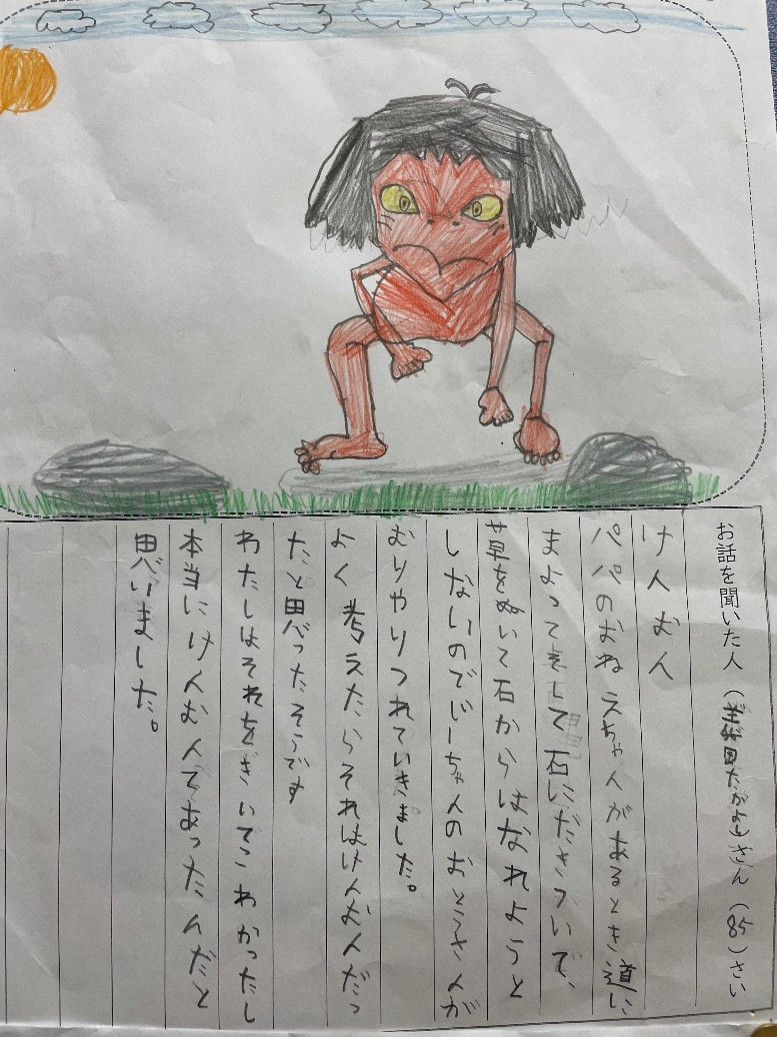 お話を聞いた人（田たかよし）さん（85）さい
けんむん
パパのおねえちゃんがあるとき道に
まよってそして石にだきついて、
草をぬいて石からはなれようと
しないのでじーちゃんのおとうさんが
むりやりつれていきました。
よく考えたらそれはけんむんだっ
たと思ったそうです
わたしはそれをぎいてこわかったし
本当にけんむんてあったんだと
思いました。